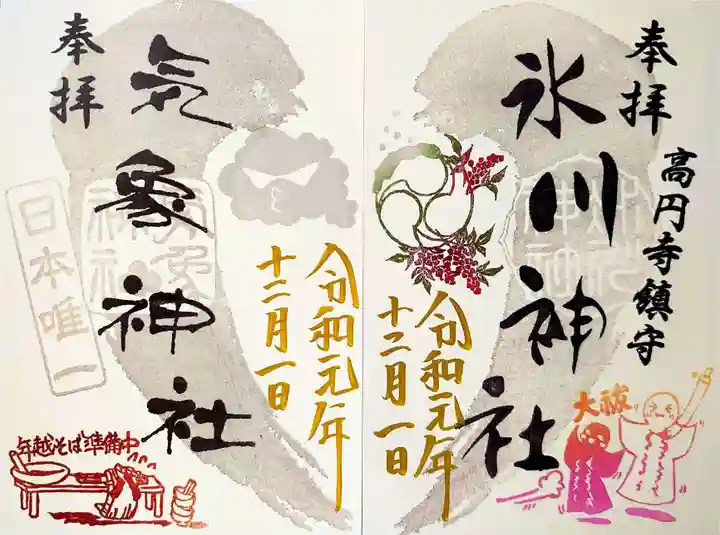 奉拝
高円寺鎮守
氷川神社
令和元年
十二月一日
大祓
奉拝
気象神社
日本唯一
令和元年
十二月一日
年越そば準備中